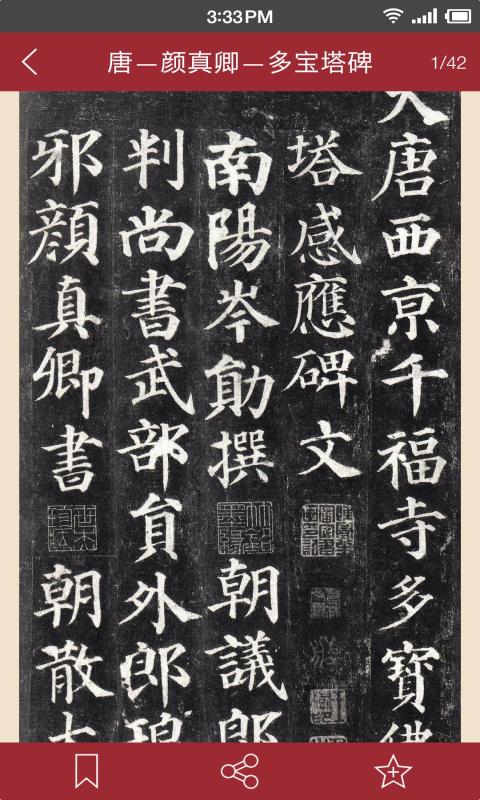 3:33PM
唐—颜真卿—多宝塔碑
1/42
大唐西亰千福寺多寶佛
塔感應碑文
南陽岑勛撰 朝議郎
判尚書武部員外郎琅
邪顏真卿書 朝散大